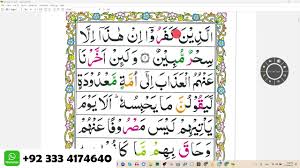 الَّذِيْنَ كَفَرُوْۤا اِنْ هٰذَاۤ اِلَّا
سِحْرٌ مُّبِيْنٌ ۝ وَلَئِنْ اَخَّرْنَا
عَنْهُمُ الْعَذَابَ اِلٰۤى اُمَّةٍ مَّعْدُوْدَةٍ
لَّيَقُوْلُنَّ مَا يَحْبِسُهٗ ؕ اَلَا يَوْمَ
يَاْتِيْهِمْ لَيْسَ مَصْرُوْفًا عَنْهُمْ
وَحَاقَ بِهِمْ مَّا كَانُوْا
+92 333 4174640